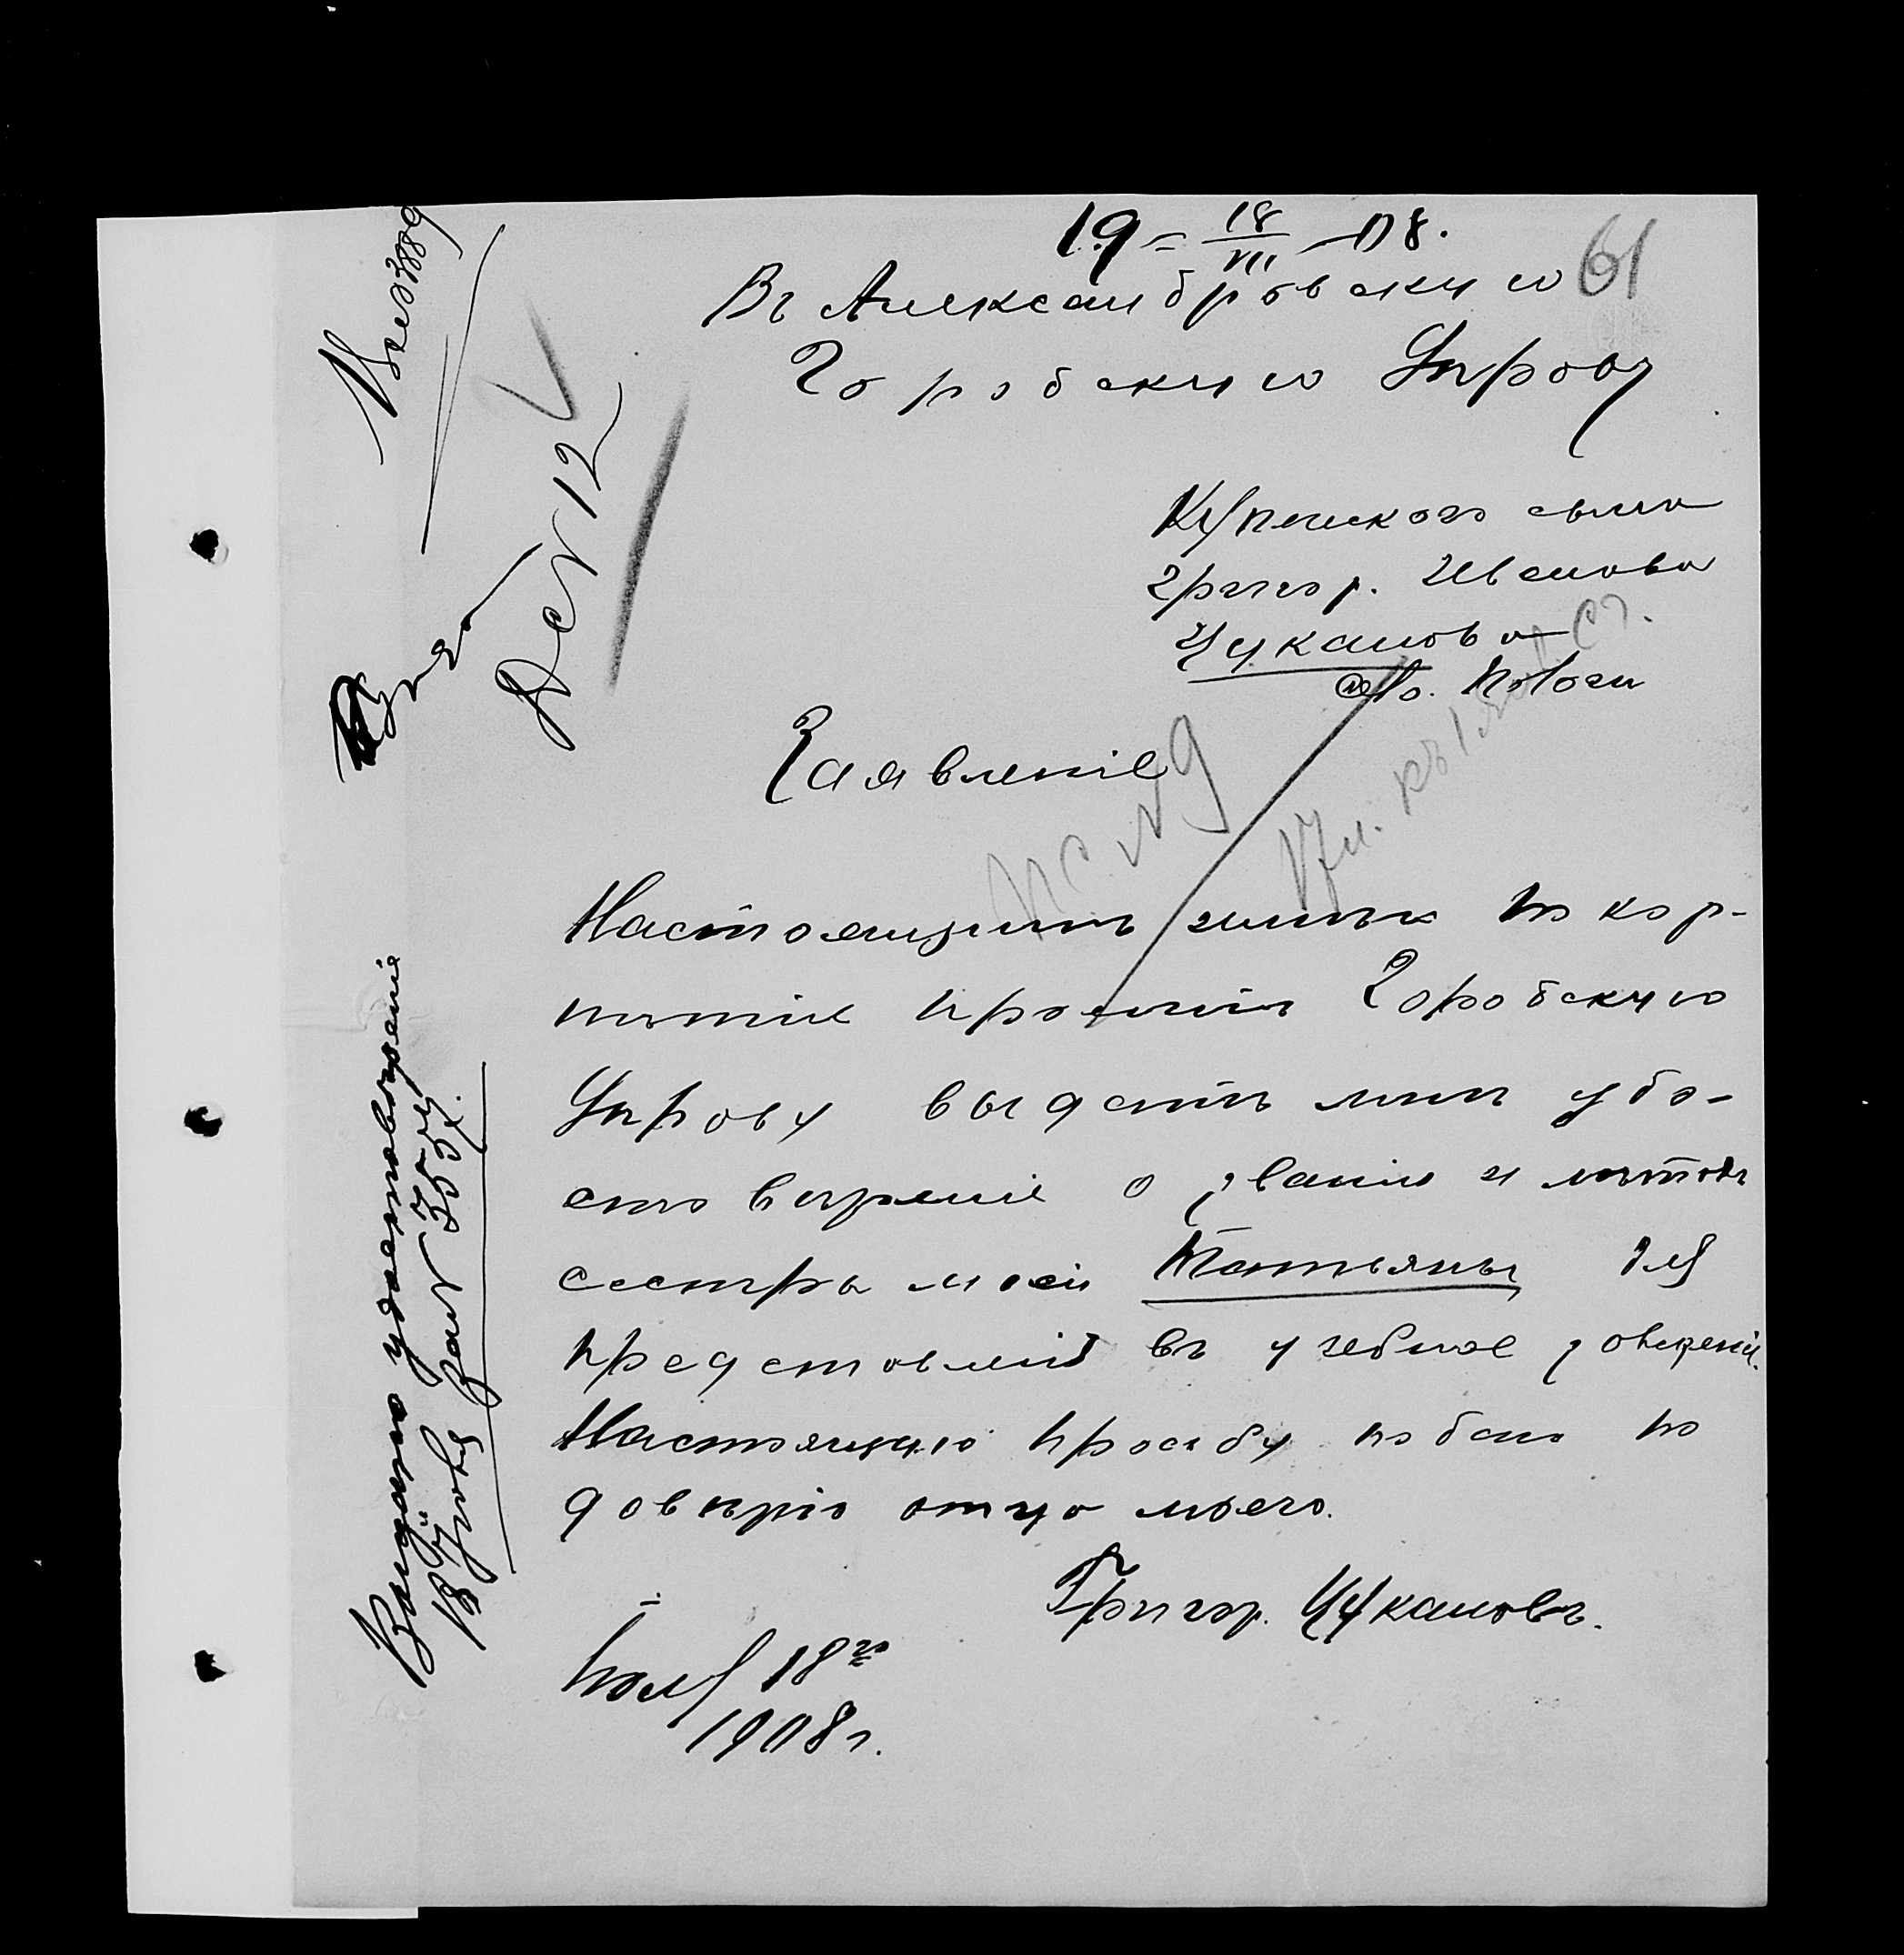 19 = 18/VII - 08.
61
Въ Александровскую
Городскую Управу
Купеческого сына
Григор. Иванова
Цуканова
ст. Пологи
Заявленіе
Настоящимъ имѣю покор-
нѣйше просить Городскую
Управу выдать мнѣ удо-
стовѣреніе о званіи и лѣтахъ
сестры моей Татьяны для
представленія въ учебное заведеніе.
Настоящую просьбу подаю по
довѣрію отца моего.
Григор. Цукановъ.
Іюля 18го
1908 г.
3889
Дел N 12
N 9
Выдано удостовѣреніе
18 Іюля за N 3537.